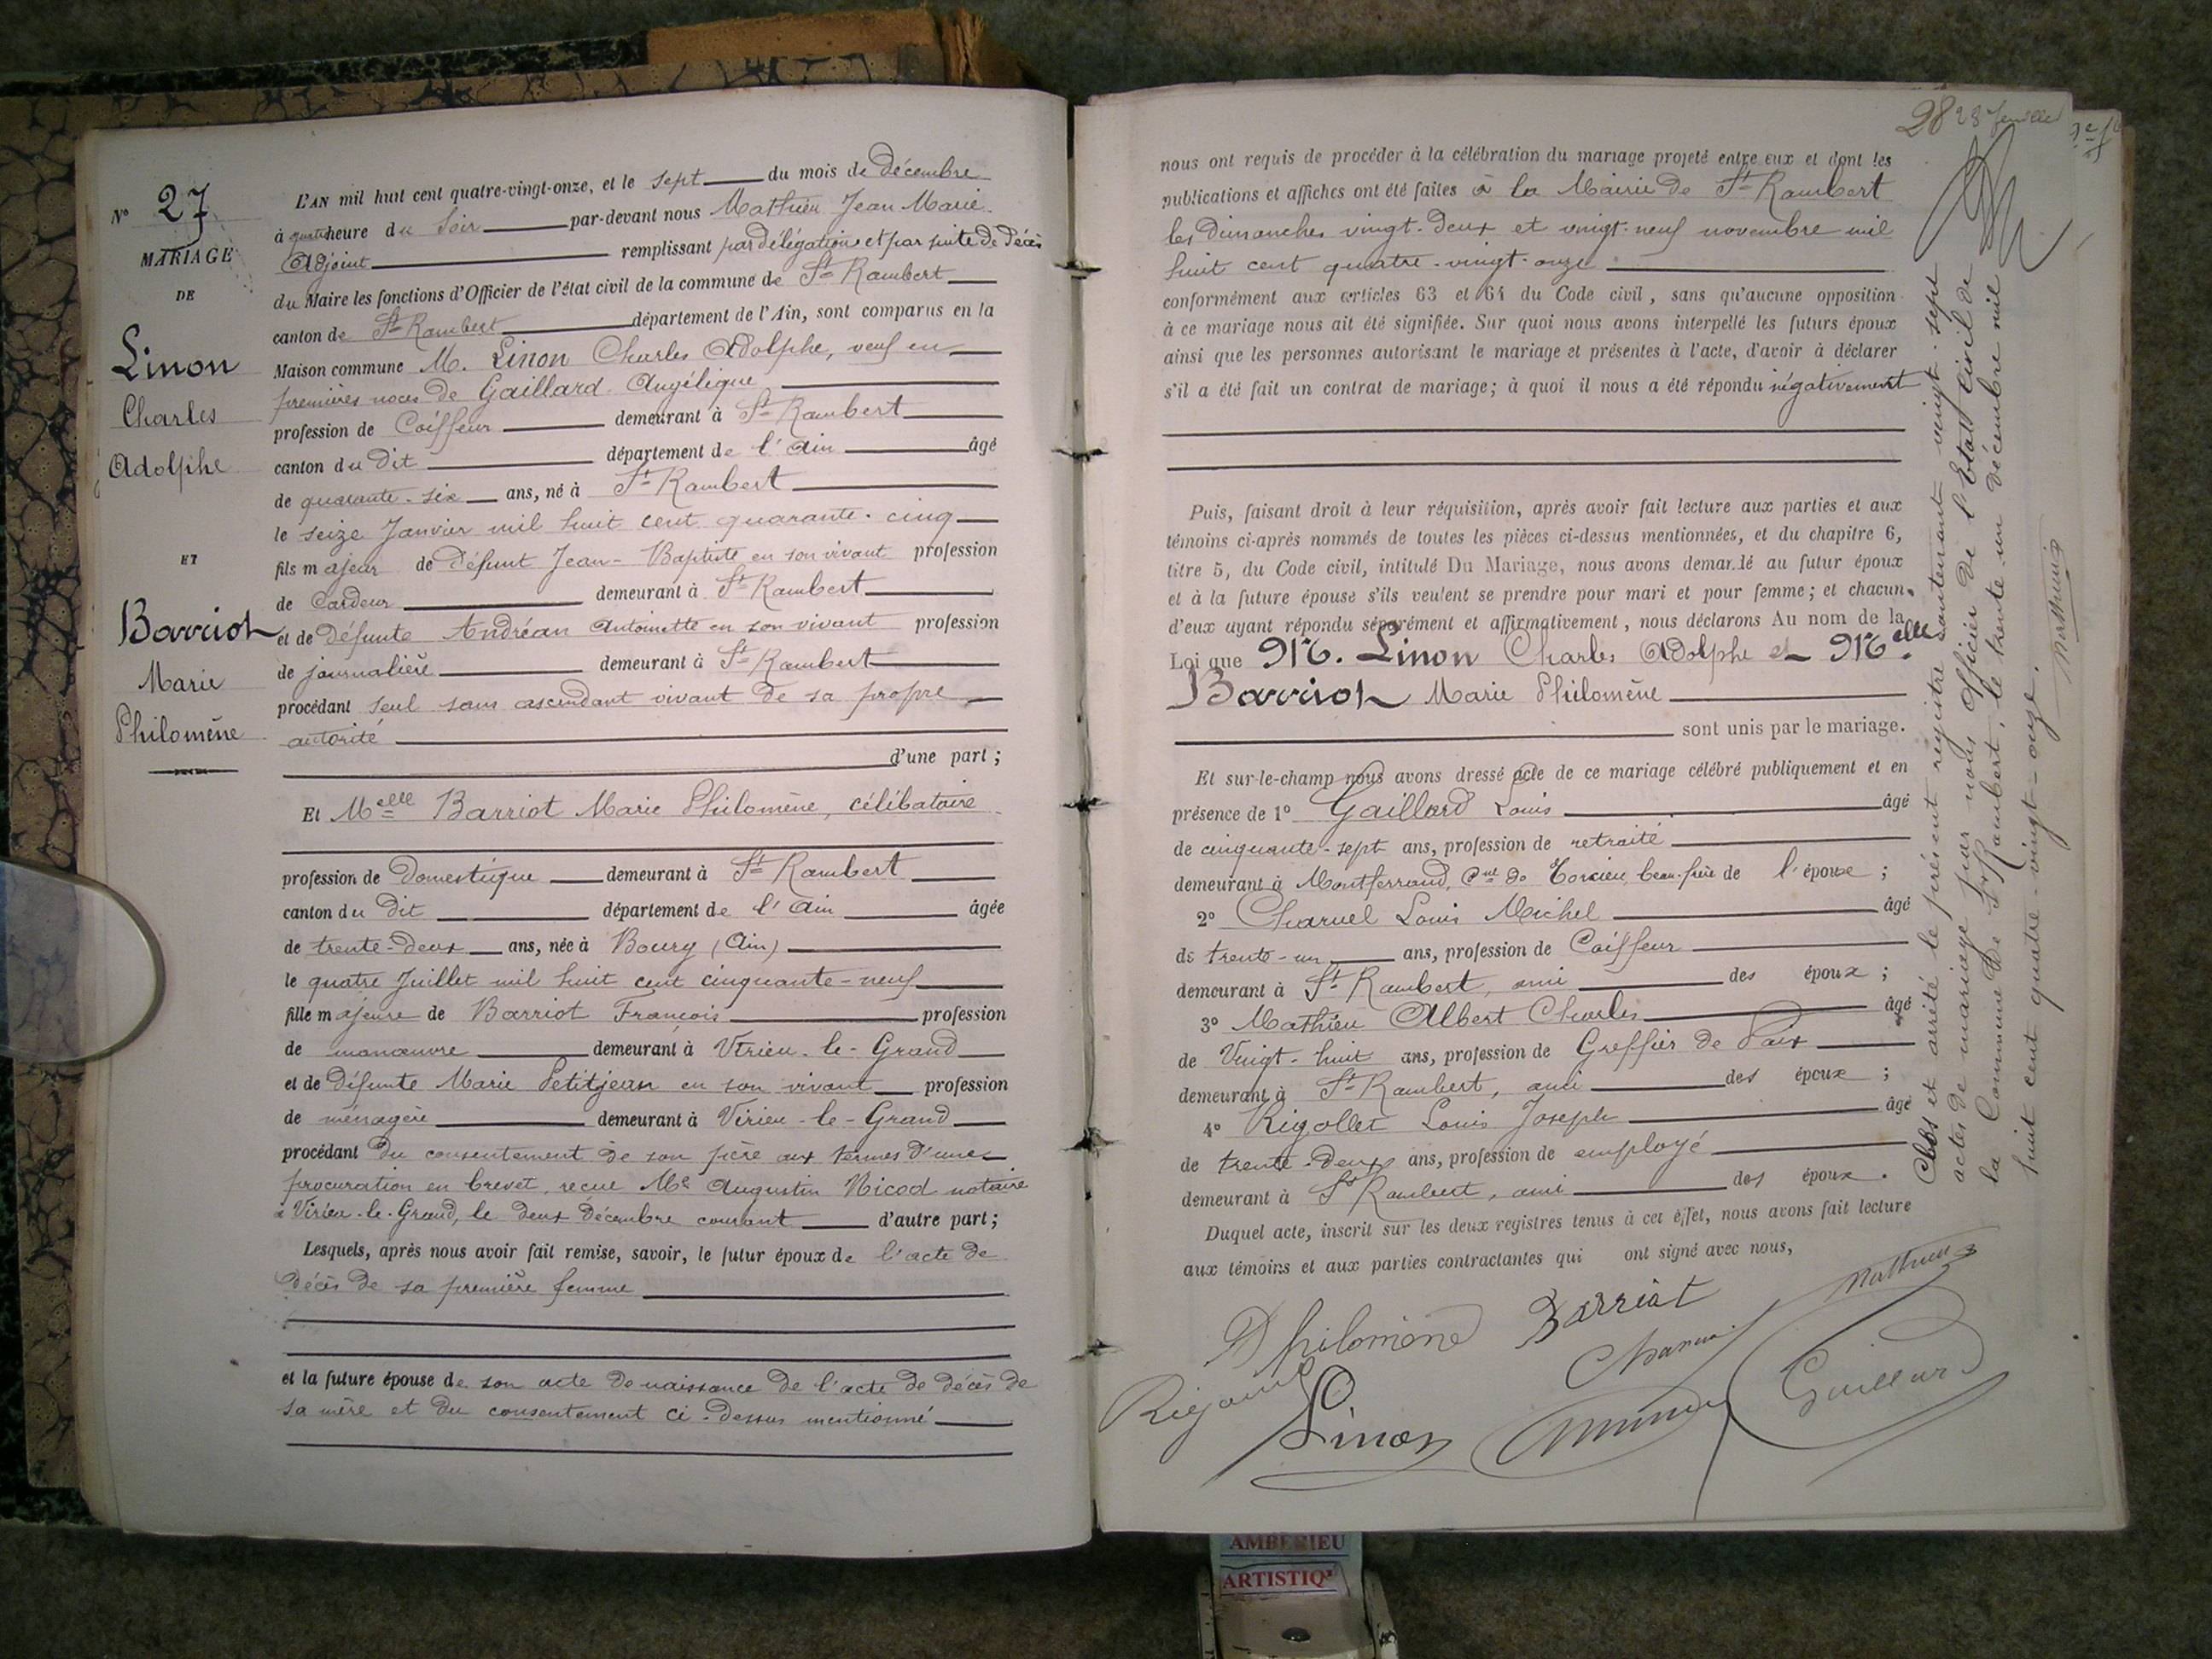 N° 27
MARIAGE
DE
Linon
Charles
Adolphe
ET
Barriot
Marie
Philomène
L'AN mil huit cent quatre-vingt-onze, et le sept du mois de Décembre
à quatre heure du Soir par-devant nous Mathieu Jean Marie
Adjoint remplissant par délégation et par suite de Décès
du Maire les fonctions d'Officier de l'état civil de la commune de St Rambert
canton de St Rambert département de l'Ain, sont comparus en la
Maison commune M. Linon Charles Adolphe, veuf en
premières noces de Gaillard Angélique
profession de Coiffeur demeurant à St Rambert
canton du dit département de l'Ain âgé
de quarante-six ans, né à St Rambert
le seize Janvier mil huit cent quarante-cinq
fils majeur de Défunt Jean-Baptiste en son vivant profession
de Cardeur demeurant à St Rambert
et de Défunte Andréan Antoinette en son vivant profession
de journalière demeurant à St Rambert
procédant seul sans ascendant vivant de sa propre
autorité
d'une part;
Et Melle Barriot Marie Philomène, célibataire
profession de Domestique demeurant à St Rambert
canton du dit département de l'Ain âgée
de trente-deux ans, née à Bourg (Ain)
le quatre Juillet mil huit cent cinquante-neuf
fille majeure de Barriot François profession
de manœuvre demeurant à Virieu-le-Grand
et de Défunte Marie Petitjean en son vivant profession
de ménagère demeurant à Virieu-le-Grand
procédant du consentement de son père aux termes d'une
procuration en brevet, recue Me Augustin Nicod notaire
à Virieu-le-Grand, le deux Décembre courant d'autre part;
Lesquels, après nous avoir fait remise, savoir, le futur époux de l'acte de
Décès de sa première femme
et la future épouse de son acte de naissance de l'acte de décès de
sa mère et du consentement ci-dessus mentionné
28 28
nous ont requis de procéder à la célébration du mariage projeté entre eux et dont les
publications et affiches ont été faites à la Mairie de St Rambert
les Dimanches vingt-deux et vingt-neuf novembre mil
huit cent quatre-vingt-onze
conformément aux articles 63 et 64 du Code civil, sans qu'aucune opposition
à ce mariage nous ait été signifiée. Sur quoi nous avons interpellé les futurs époux
ainsi que les personnes autorisant le mariage et présentes à l'acte, d'avoir à déclarer
s'il a été fait un contrat de mariage; à quoi il nous a été répondu négativement
Puis, faisant droit à leur réquisition, après avoir fait lecture aux parties et aux
témoins ci-après nommés de toutes les pièces ci-dessus mentionnées, et du chapitre 6,
titre 5, du Code civil, intitulé Du Mariage, nous avons demandé au futur époux
et à la future épouse s'ils veulent se prendre pour mari et pour femme; et chacun
d'eux ayant répondu séparément et affirmativement, nous déclarons Au nom de la
Loi que M. Linon Charles Adolphe et Melle
Barriot Marie Philomène
sont unis par le mariage.
Et sur-le-champ nous avons dressé acte de ce mariage célébré publiquement et en
présence de 1° Gaillard Louis âgé
de cinquante-sept ans, profession de retraité
demeurant à Montferrand, Cne de Torcieu, beau-frère de l'époux;
2° Charvel Louis Michel âgé
de trente-un ans, profession de Coiffeur
demeurant à St Rambert, ami des époux;
3° Mathieu Albert Charles âgé
de Vingt-huit ans, profession de Greffier de Paix
demeurant à St Rambert, ami des époux;
4° Rigollet Louis Joseph âgé
de trente-deux ans, profession de employé
demeurant à St Rambert, ami des époux.
Duquel acte, inscrit sur les deux registres tenus à cet effet, nous avons fait lecture
aux témoins et aux parties contractantes qui ont signé avec nous,
Philomène Barriot
Mathieu
Linon
Gaillard
Clos et arrêté le présent registre contenant vingt-sept
actes de mariage par nous Officier de l'Etat Civil de
la Commune de St Rambert, le trente-un Décembre mil
huit cent quatre-vingt-onze.
Mathieu
AMBERIEU
ARTISTIQ